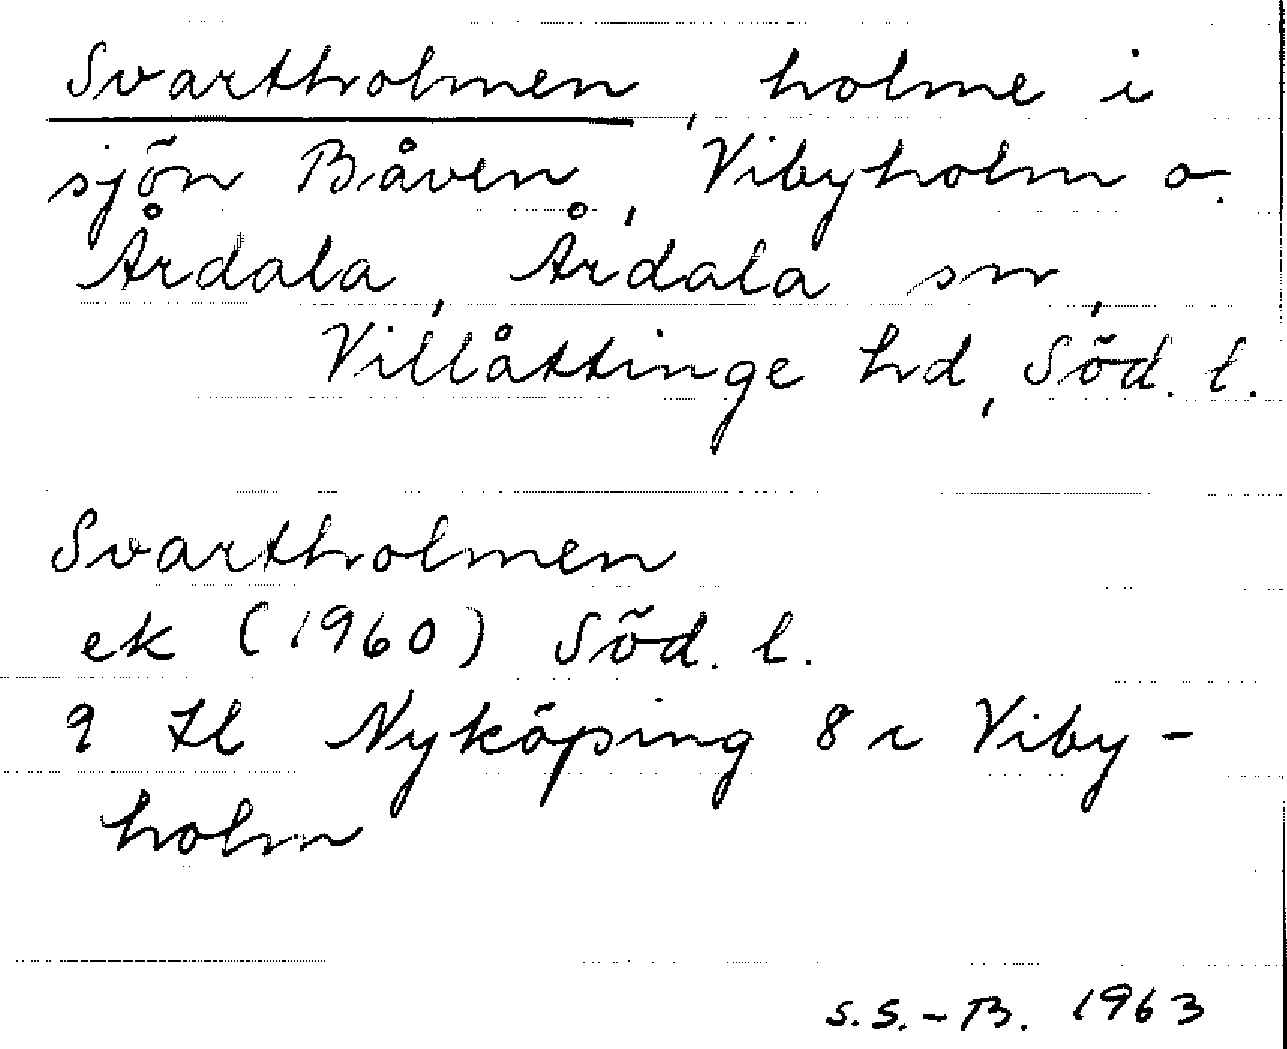 Svartholmen, holme i
sjön Båven, Vibyholm o.
Årdala, Årdala sn,
Villåttinge hd, Söd. l.
Svartholmen
ek (1960) Söd. l.
9 H l Nyköping 8 c Viby-
holm
S.S.-B. 1963